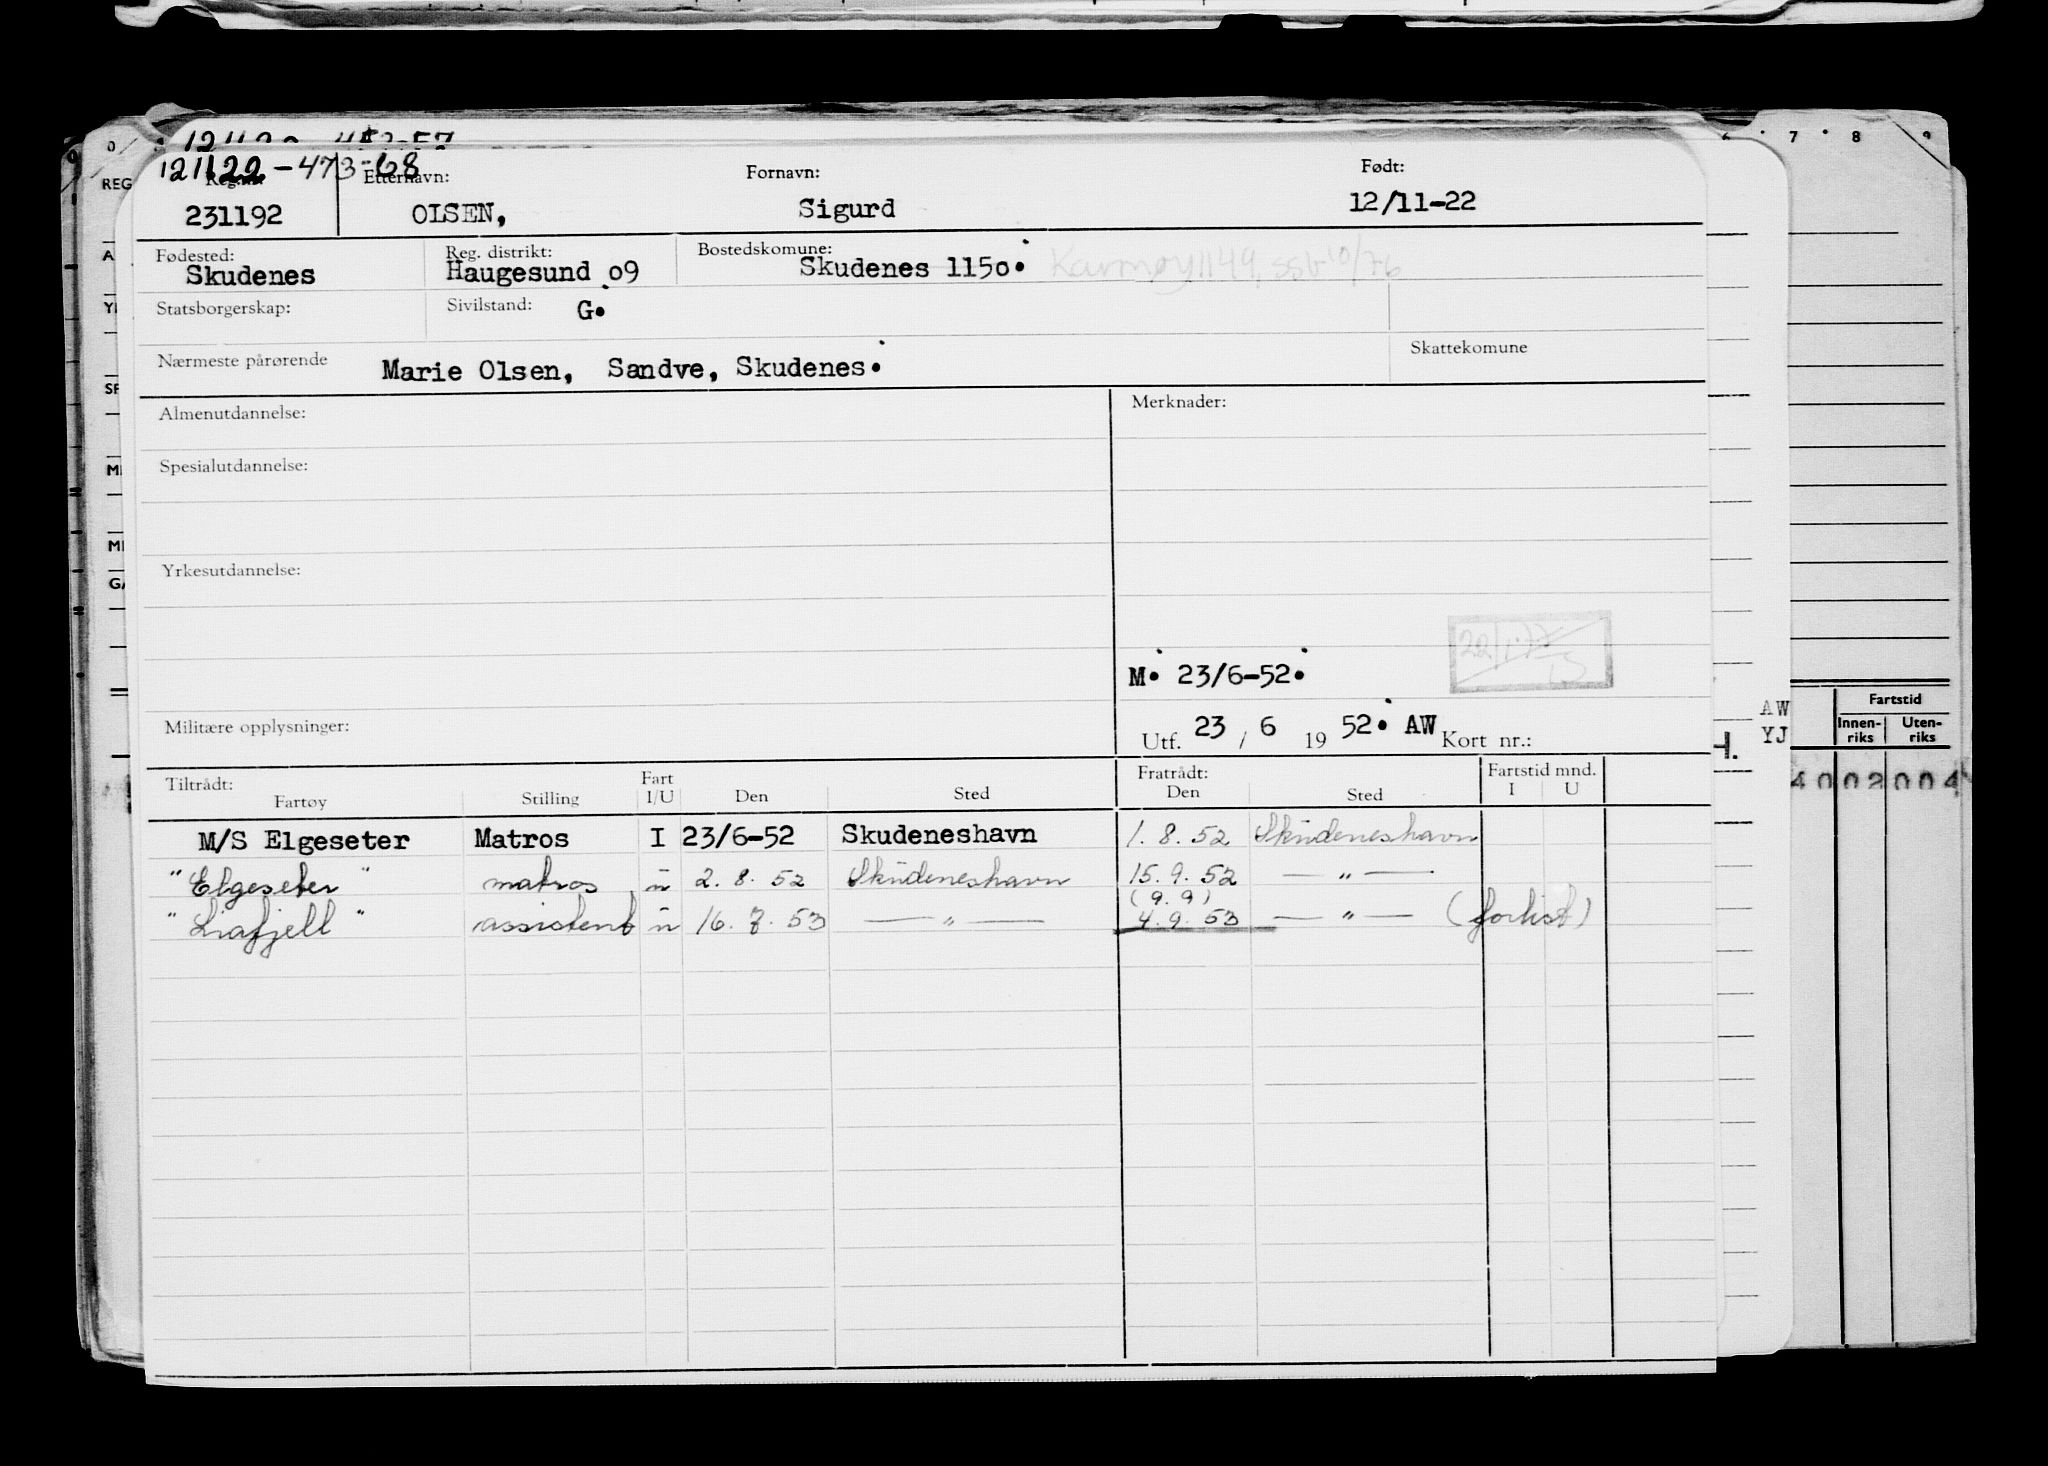 121122-473-68
Reg.nr. Etternavn: Fornavn: Født:
231192 OLSEN, Sigurd 12/11-22
Fødested: Reg. distrikt: Bostedskomune:
Skudenes Haugesund 09 Skudenes 1150. Karmøy 1149, SSB 10/76
Statsborgerskap: Sivilstand: G.
Nærmeste pårørende Marie Olsen, Sandve, Skudenes. Skattekomune
Almenutdannelse: Merknader:
Spesialutdannelse:
Yrkesutdannelse:
M. 23/6-52.
Militære opplysninger: Utf. 23 / 6 19 52. AW Kort nr.:
Tiltrådt: Fart Fratrådt: Fartstid mnd.
Fartøy Stilling I/U Den Sted Den Sted I U
M/S Elgeseter Matros I 23/6-52 Skudeneshavn 1.8.52 Skudeneshavn
" Elgeseter " matros u 2.8.52 Skudeneshavn 15.9.52 — " —
(9.9)
" Liafjell " assistent u 16.7.53 — " — 4.9.53 — " — (forlist)
7 8 9
AW
YJ
Fartstid
Innen-riks Uten-riks
4 0 0 2 0 0 4